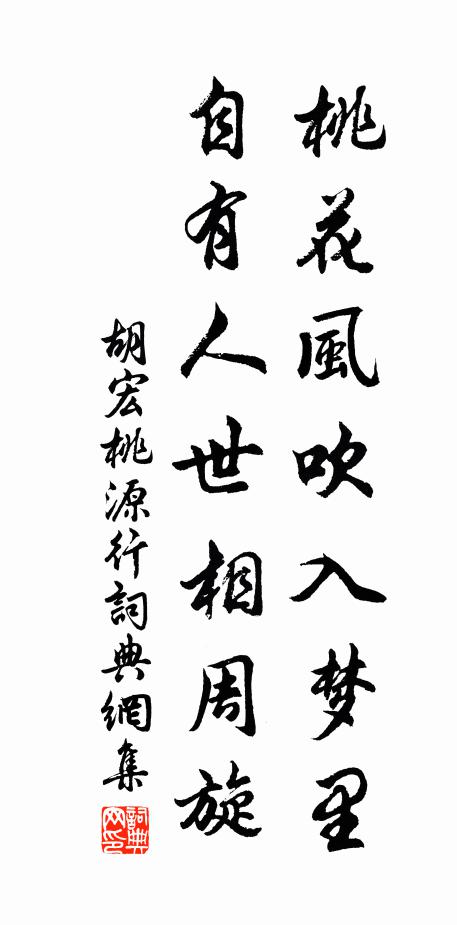 桃花風吹入梦里
自有人世相周旋
胡宏桃源行詞典網集
詞典网印